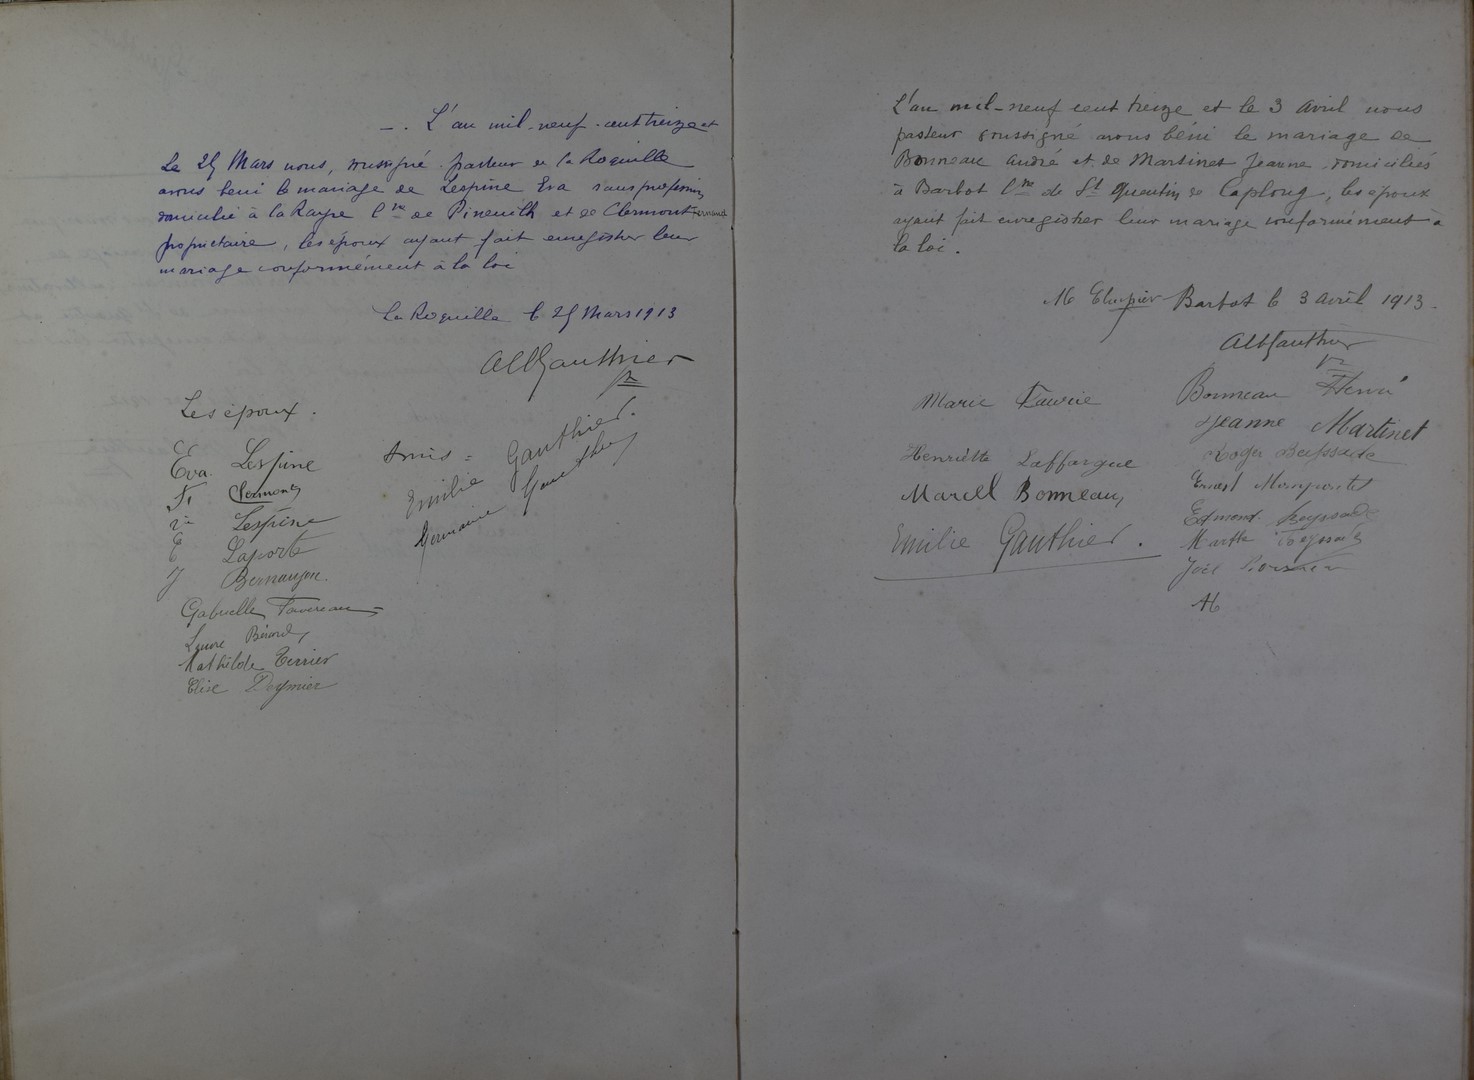 —. L'an mil-neuf-cent treize et
Le 25 Mars nous, soussigné pasteur de la Roquille
avons béni le mariage de Lespine Eva sans profession
domicilié à la Raype Cne de Pineuilh et de Clermont Fernand
propriétaire, les époux ayant fait enregistrer leur
mariage conformément à la loi
La Roquille le 25 Mars 1913
Alb Gauthier
Les époux.
Eva Lespine
F. Clermont
Lespine
E Laporte
J
Gabrielle Favereau
Bérard
Mathilde Terrier
Elise Deymier
Amis =
Emilie Gauthier.
Germaine Gauthier
L'an mil-neuf cent treize et le 3 avril nous
pasteur soussigné avons béni le mariage de
Bonneau André et de Martinet Jeanne domiciliés
à Barbot Cne de St Quentin de Caplong, les époux
ayant fait enregistrer leur mariage conformément à
la loi.
Barbot le 3 avril 1913.
Alb Gauthier
Marie Faurie
Henriette Laffargue
Marcel Bonneau
Emilie Gauthier.
Bonneau Hervé
Jeanne Martinet
Roger
Ernest
Edmond
Marthe
Joël